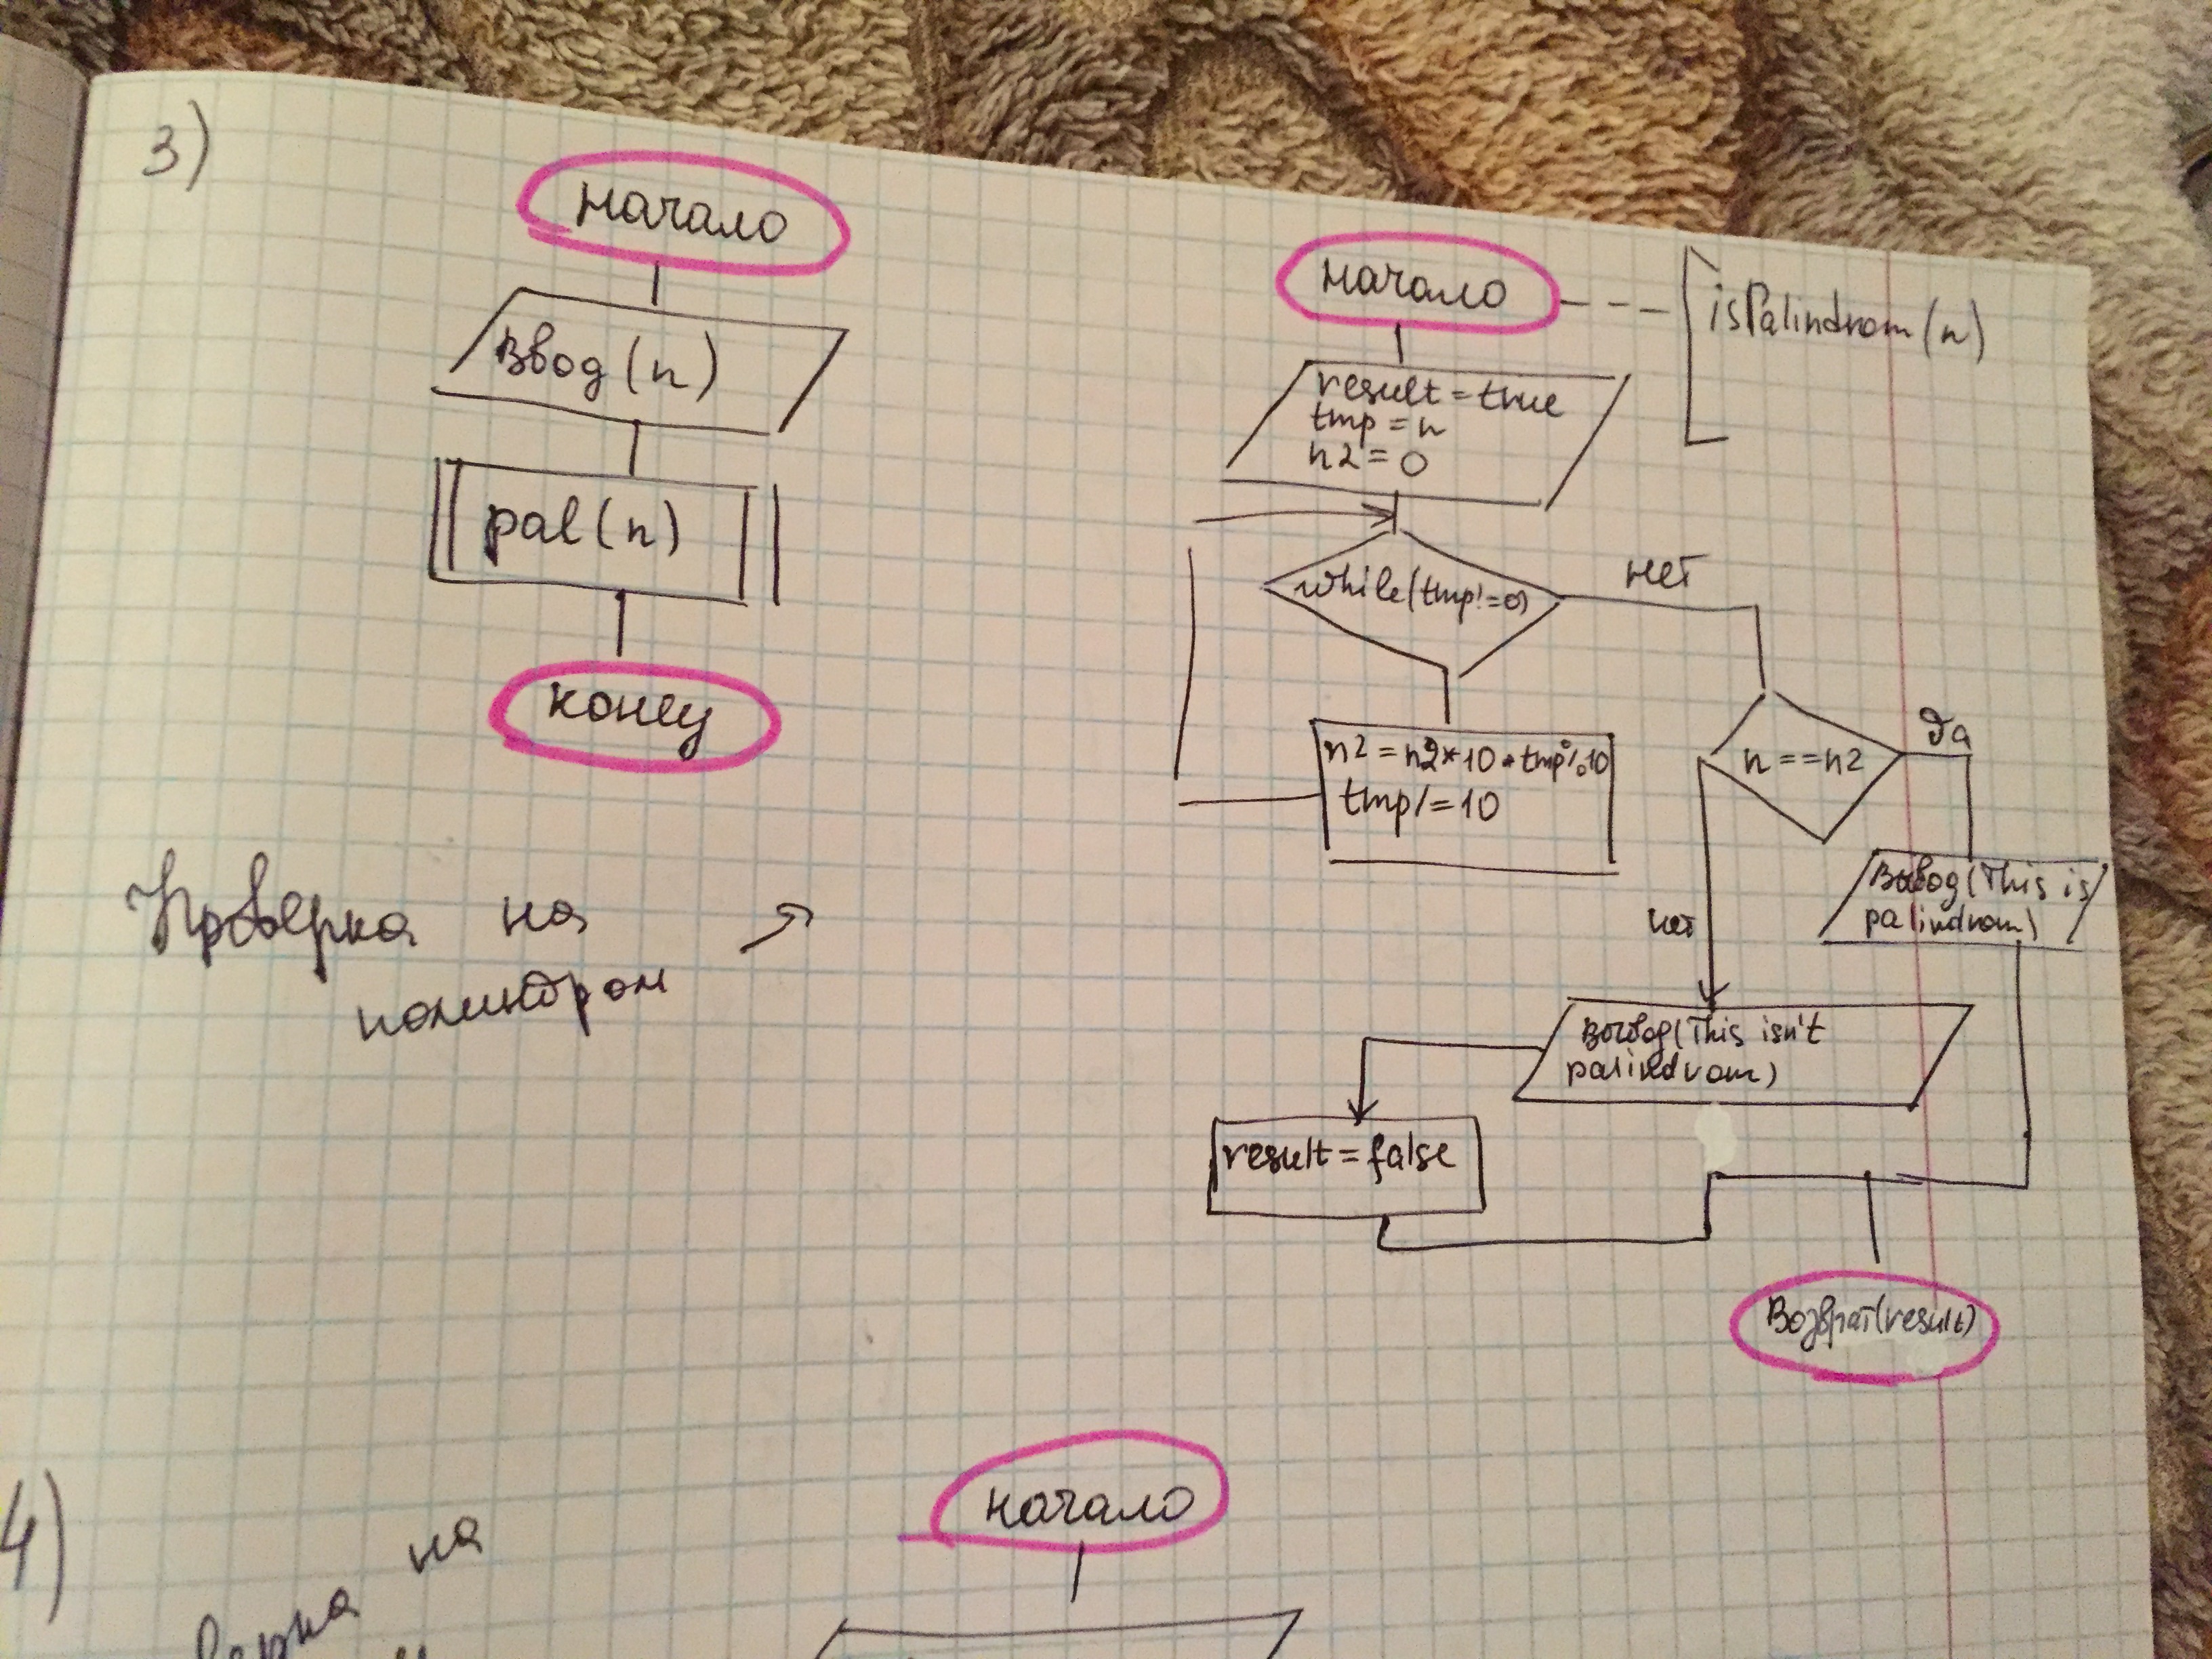 3)
начало
ввод (n)
pal (n)
конец
Проверка на
палиндром →
начало
isPalindrom (n)
result = true
tmp = n
n2 = 0
while(tmp!=0)
нет
n2 = n2*10+tmp%10
tmp/=10
n==n2
да
нет
вывод (This is
palindrom)
вывод (This isn't
palindrom)
result = false
Возврат(result)
4)
начало
на